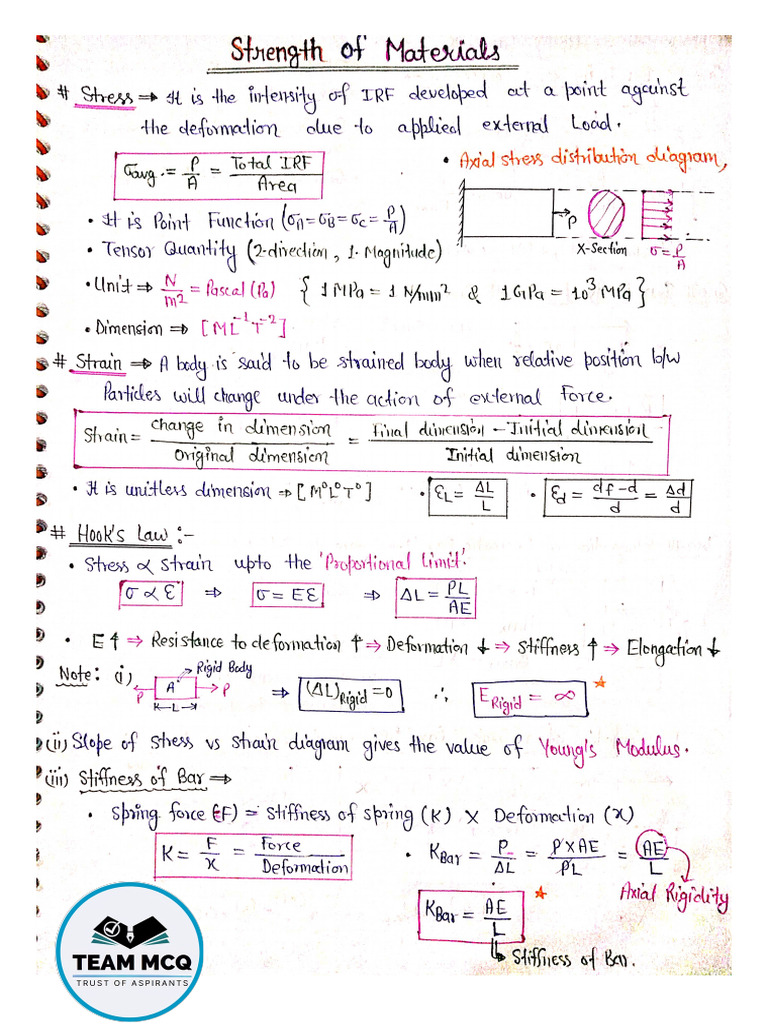 Strength of Materials
# Stress → It is the intensity of IRF developed at a point against
the deformation due to applied external Load.
σavg. = P/A = Total IRF / Area
• Axial stress distribution diagram,
P
X-Section
σ = P/A
• It is Point Function (σA = σB = σC = P/A)
• Tensor Quantity (2-direction, 1-Magnitude)
• Unit ⇒ N/m² = Pascal (Pa) { 1 MPa = 1 N/mm² & 1 GPa = 10³ MPa }
• Dimension ⇒ [ML⁻¹T⁻²]
# Strain → A body is said to be strained body when relative position b/w
Particles will change under the action of external Force.
Strain = change in dimension / Original dimension = Final dimension – Initial dimension / Initial dimension
• It is unitless dimension → [M⁰L⁰T⁰] • ƐL = ΔL/L • Ɛd = df-d / d = Δd/d
# Hook's Law :-
• Stress ∝ Strain upto the 'Proportional Limit'.
σ ∝ Ɛ ⇒ σ = EƐ ⇒ ΔL = PL/AE
• E↑ ⇒ Resistance to deformation ↑ ⇒ Deformation ↓ ⇒ Stiffness ↑ ⇒ Elongation ↓
Note: (i) P A P Rigid Body L ⇒ (ΔL)Rigid = 0 ∴ E Rigid = ∞
(ii) Slope of Stress vs Strain diagram gives the value of Young's Modulus.
(iii) Stiffness of Bar ⇒
• Spring force (F) = Stiffness of spring (K) X Deformation (x)
K = F/x = Force / Deformation
• KBar = P/ΔL = PXAE / PL = AE/L
Axial Rigidity
KBar = AE/L
Stiffness of Bar.
TEAM MCQ
TRUST OF ASPIRANTS